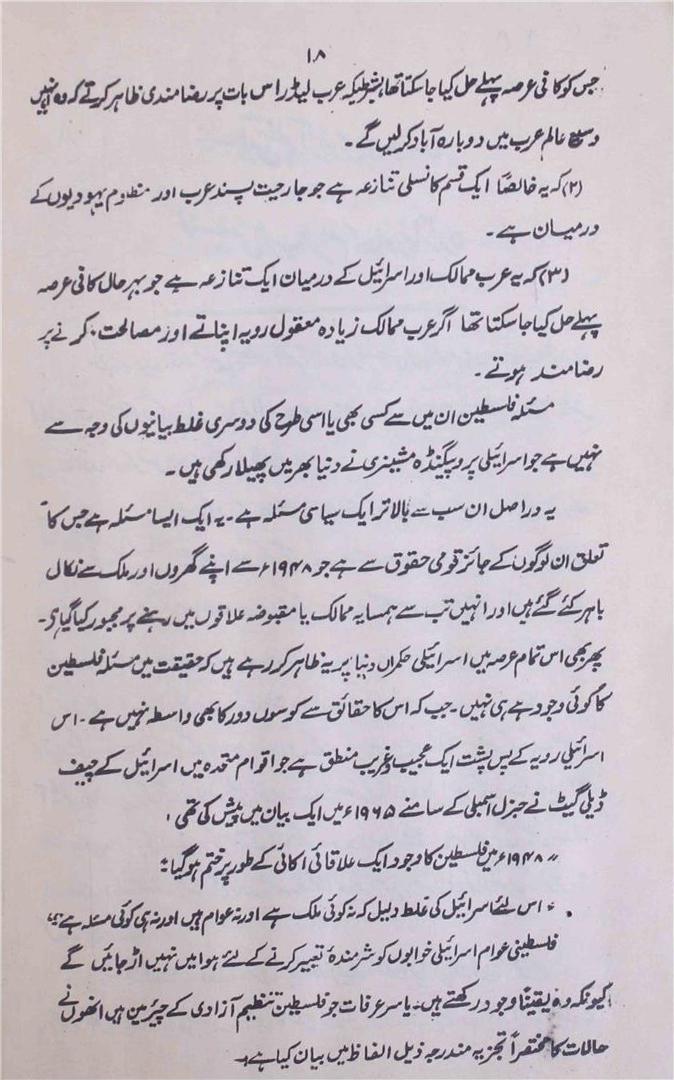 ۱۸
جس کو کافی عرصہ پہلے حل کیا جا سکتا تھا بشرطیکہ عرب لیڈر اس بات پر رضامندی ظاہر کرتے کہ وہ انہیں
وسیع عالم عرب میں دوبارہ آباد کرلیں گے۔
(۲) کہ یہ خالصاً ایک قسم کا نسلی تنازعہ ہے جو جارحیت پسند عرب اور مظلوم یہودیوں کے
درمیان ہے۔
(۳) کہ یہ عرب ممالک اور اسرائیل کے درمیان ایک تنازعہ ہے جو بہر حال کافی عرصہ
پہلے حل کیا جا سکتا تھا اگر عرب ممالک زیادہ معقول رویہ اپناتے اور مصالحت کرنے پر
رضا مند ہوتے۔
مسئلہ فلسطین ان میں سے کسی بھی یا اسی طرح کی دوسری غلط بیانیوں کی وجہ سے
نہیں ہے جو اسرائیلی پروپیگنڈہ مشینری نے دنیا بھر میں پھیلا رکھی ہیں۔
یہ دراصل ان سب سے بالاتر ایک سیاسی مسئلہ ہے۔ یہ ایک ایسا مسئلہ ہے جس کا
تعلق ان لوگوں کے جائز قومی حقوق سے ہے جو ۱۹۴۸ء سے اپنے گھروں اور ملک سے نکال
باہر کئے گئے ہیں اور انہیں تب سے ہمسایہ ممالک یا مقبوضہ علاقوں میں رہنے پر مجبور کیا گیا ہے۔
پھر بھی اس تمام عرصہ میں اسرائیلی حکمراں دنیا پر یہ ظاہر کر رہے ہیں کہ حقیقت میں مسئلہ فلسطین
کا کوئی وجود ہے ہی نہیں۔ جب کہ اس کا حقائق سے کوسوں دور کا بھی واسطہ نہیں ہے۔ اس
اسرائیلی رویہ کے پس پشت ایک عجیب و غریب منطق ہے جو اقوام متحدہ میں اسرائیل کے چیف
ڈیلی گیٹ نے جنرل اسمبلی کے سامنے ۱۹۶۵ء میں ایک بیان میں پیش کی تھی۔
"۱۹۴۸ء میں فلسطین کا وجود ایک علاقائی اکائی کے طور پر ختم ہو گیا"
"اس لئے اسرائیل کی غلط دلیل کہ نہ کوئی ملک ہے اور نہ عوام ہیں اور نہ ہی کوئی مسئلہ ہے"
فلسطینی عوام اسرائیلی خوابوں کو شرمندۂ تعبیر کرنے کے لئے ہوا میں نہیں اڑ جائیں گے
کیونکہ وہ یقیناً وجود رکھتے ہیں۔ یاسر عرفات جو فلسطین تنظیم آزادی کے چیئرمین ہیں انھوں نے
حالات کا مختصراً تجزیہ مندرجہ ذیل الفاظ میں بیان کیا ہے۔